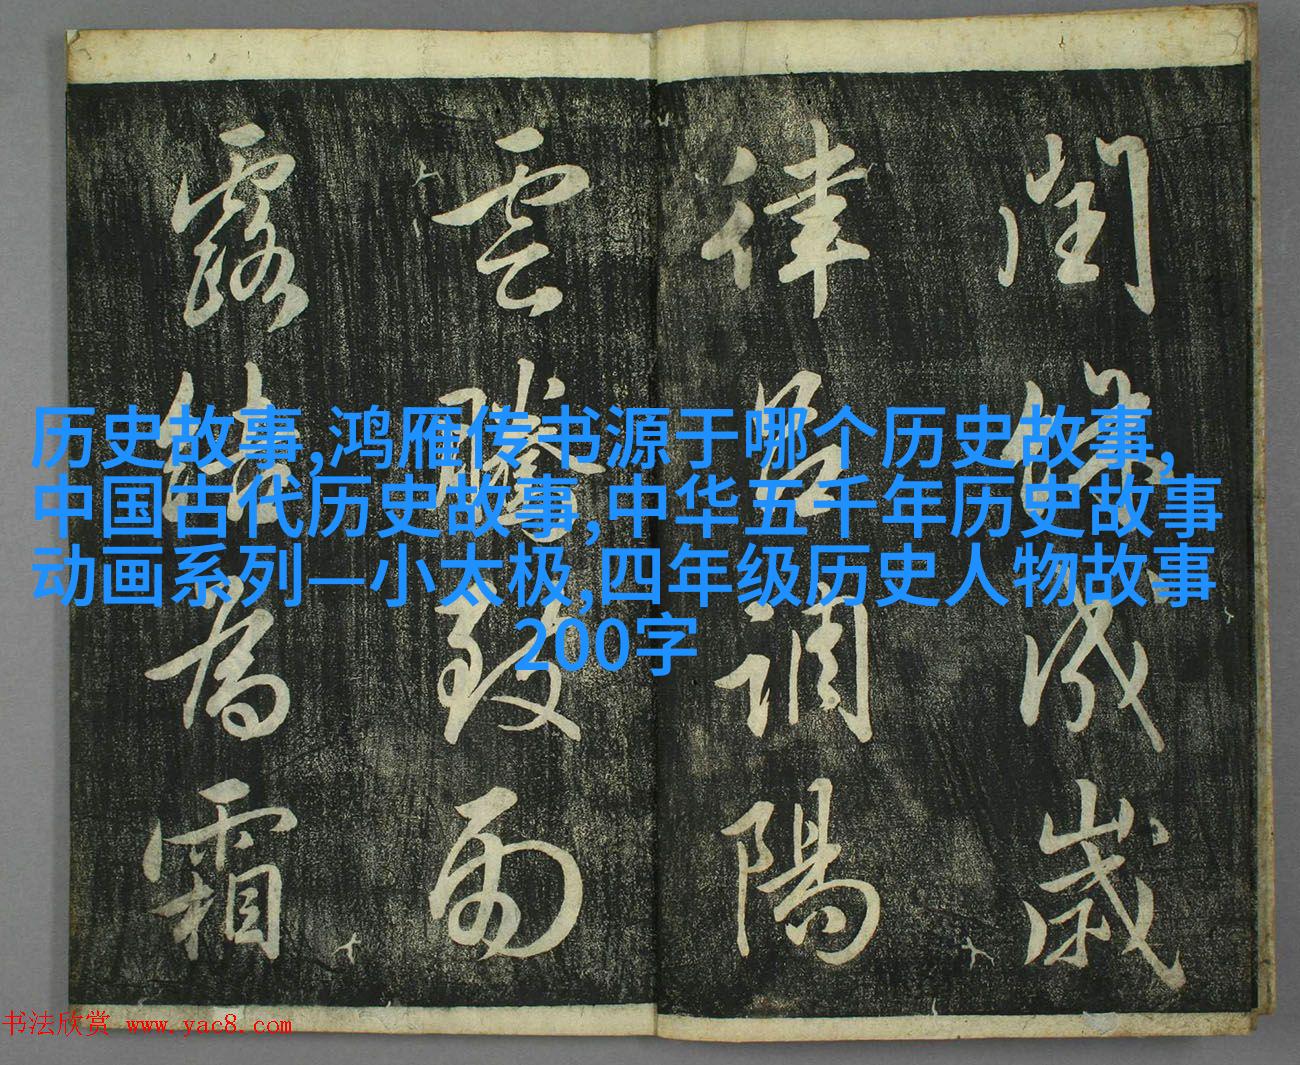 閏餘成歲
律呂調陽
雲騰致雨
露結為霜
历史故事,鸿雁传书源于哪个历史故事,
中国古代历史故事,中华五千年历史故事
动画系列—小太极,四年级历史人物故事
200字
书法欣赏 www.yac8.com